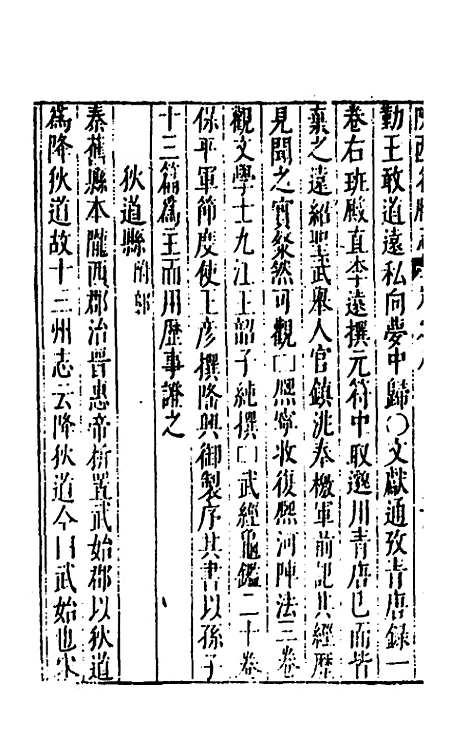 勤王敢道遠私向夢中歸○文獻通攷青唐錄一
卷右班殿直李遠撰元符中取邈川青唐已而皆
棄之遠紹聖武舉人官鎮洮奉檄軍前記其經歷
見聞之實粲然可觀□熙寧收復熙河陣法三卷
觀文學士九江王韶子純撰□武經龜鑑二十卷
保平軍節度使王彥撰隆興御製序其書以孫子
十三篇為主而用歷事證之
狄道縣附郭
秦舊縣本隴西郡治晉惠帝析置武始郡以狄道
為降狄道故十三州志云降狄道今曰武始也宋